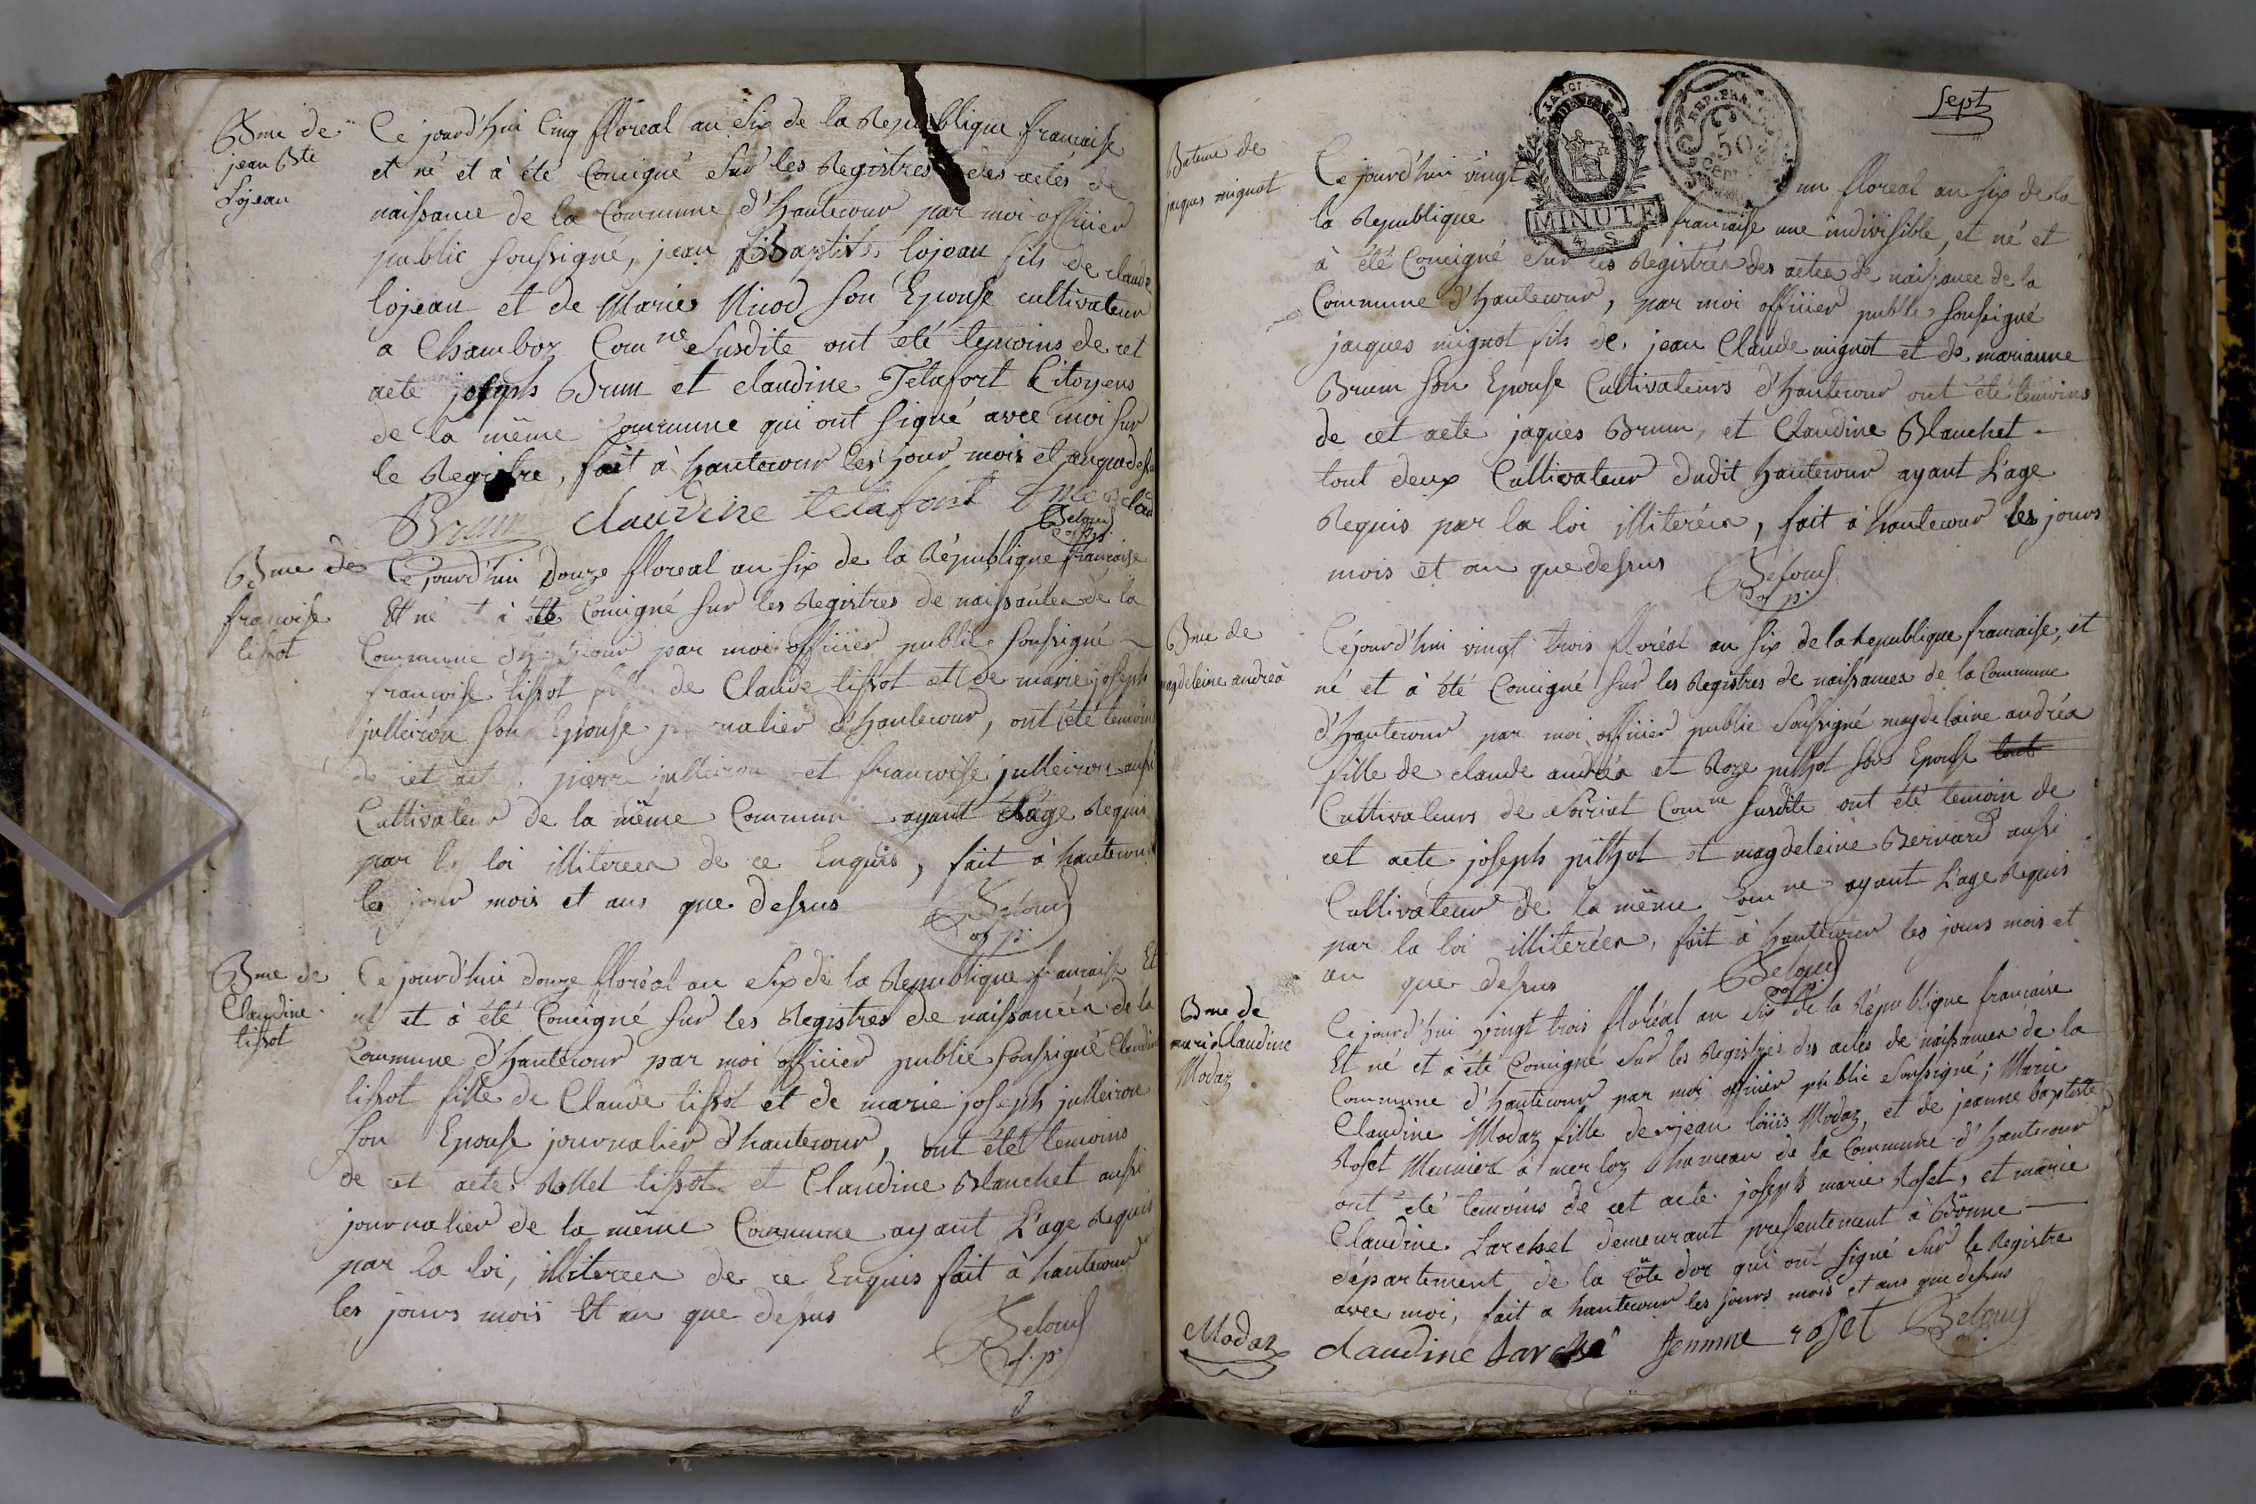 Bme de
jean Bte
Lojean
Ce jourd'hui Cinq floreal an Six de la Republique francaise
et né et à été Concigné Sur les Registres des actes de
naissance de la Commune d'hautecour par moi officier
public soussigné, jean Baptiste lojean fils de claude
lojean et de Marie Nicod son Epouse cultivateur
a Chamboz Comne Susdite ont été temoins de cet
acte joseph Brun et claudine Tétafort Citoyens
de la même commune qui ont signé avec moi sur
le Registre, fait à hautecour les jour mois et an que dessu
Brun claudine tetafort
Bme de
francoise
tissot
Ce jourd'hui Douze floreal an six de la République francaise
Et né et à été Concigné sur les Registres de naissances de la
Commune par moi officier public soussigné
francoise tissot de Claude tissot et de marie joseph
julleiron son Epouse d'hautecour, ont été temoins
de cet pierre julleiron et francoise julleiron aussi
Cultivateur de la même Commun ayant l'age Requis
par la loi illiterées de ce Enquis, fait à hautecour
les jour mois et ans que dessus
of p.
Bme de
Claudine
tissot
Ce jourd'hui douze floréal an Six de la Republique francaise Et
né et à été Concigné sur les Registres de naissances de la
Commune d'hautecour par moi officier public soussigné Claudine
tissot fille de Claude tissot et de marie joseph julleiron
son Epouse journalier d'hautecour, ont étét temoins
de cet acte tissot et Claudine Blanchet aussi
journalier de la même Commune ayant l'age Requis
par la loi, illiterées de ce Enquis fait à hautecour
les jours mois Et an que dessus
of. p.
Sept
REP. FRA.
50
Cent
LA LOI
MINUTE
4 S
Bateme de
jacques mignot
Ce jourd'hui vingt un floreal an six de la
la Republique francaise une indivisible, et né et
à été Concigné Sur les Registres des actes de naissance de la
Commune d'hautecour, par moi officier public soussigné
jacques mignot fils de jean Claude mignot et de marianne
Brum son Epouse Cultivateurs d'hautecour ont été temoins
de cet acte jaques Brum, et Claudine Blanchet
tout deux Cultivateur dudit hautecour ayant l'age
Requis par la loi illiterées, fait à hautecour les jours
mois et an que dessus
of p.
Bme de
magdeleine andréa
Cejourd'hui vingt trois floréal an six de la Republique francaise, et
né et à été Concigné sur les Registres de naissances de la Commune
d'hautecour par moi officier public Soussigné magdelaine andréa
fille de claude andréa et Roze son Epouse
Cultivateurs de Comne susdite ont été temoin de
cet acte joseph et magdeleine Bernard aussi
Cultivateur de la même Comne ayant l'age Requis
par la loi illiterées, fait à hautecour les jours mois et
an que dessus
Bme de
marie Claudine
Modaz
Ce jourd'hui vingt trois floréal an Six de la République francaise
Et né et à été Concigné Sur les Registres des actes de naissances de la
Commune d'hautecour par moi officier public Soussigné; Marie
Claudine Modaz fille de jean louis Modaz, et de jeanne baptiste
Roset Meunier à merloz hameau de la Commune d'hautecour
ont été temoins de cet acte joseph marie Roset, et marie
Claudine Larchet demeurant presentement à Bonne
département de la Côte d'or qui ont signé Sur le Registre
avec moi, fait a hautecour les jours mois et ans que dessus
Modaz claudine roset